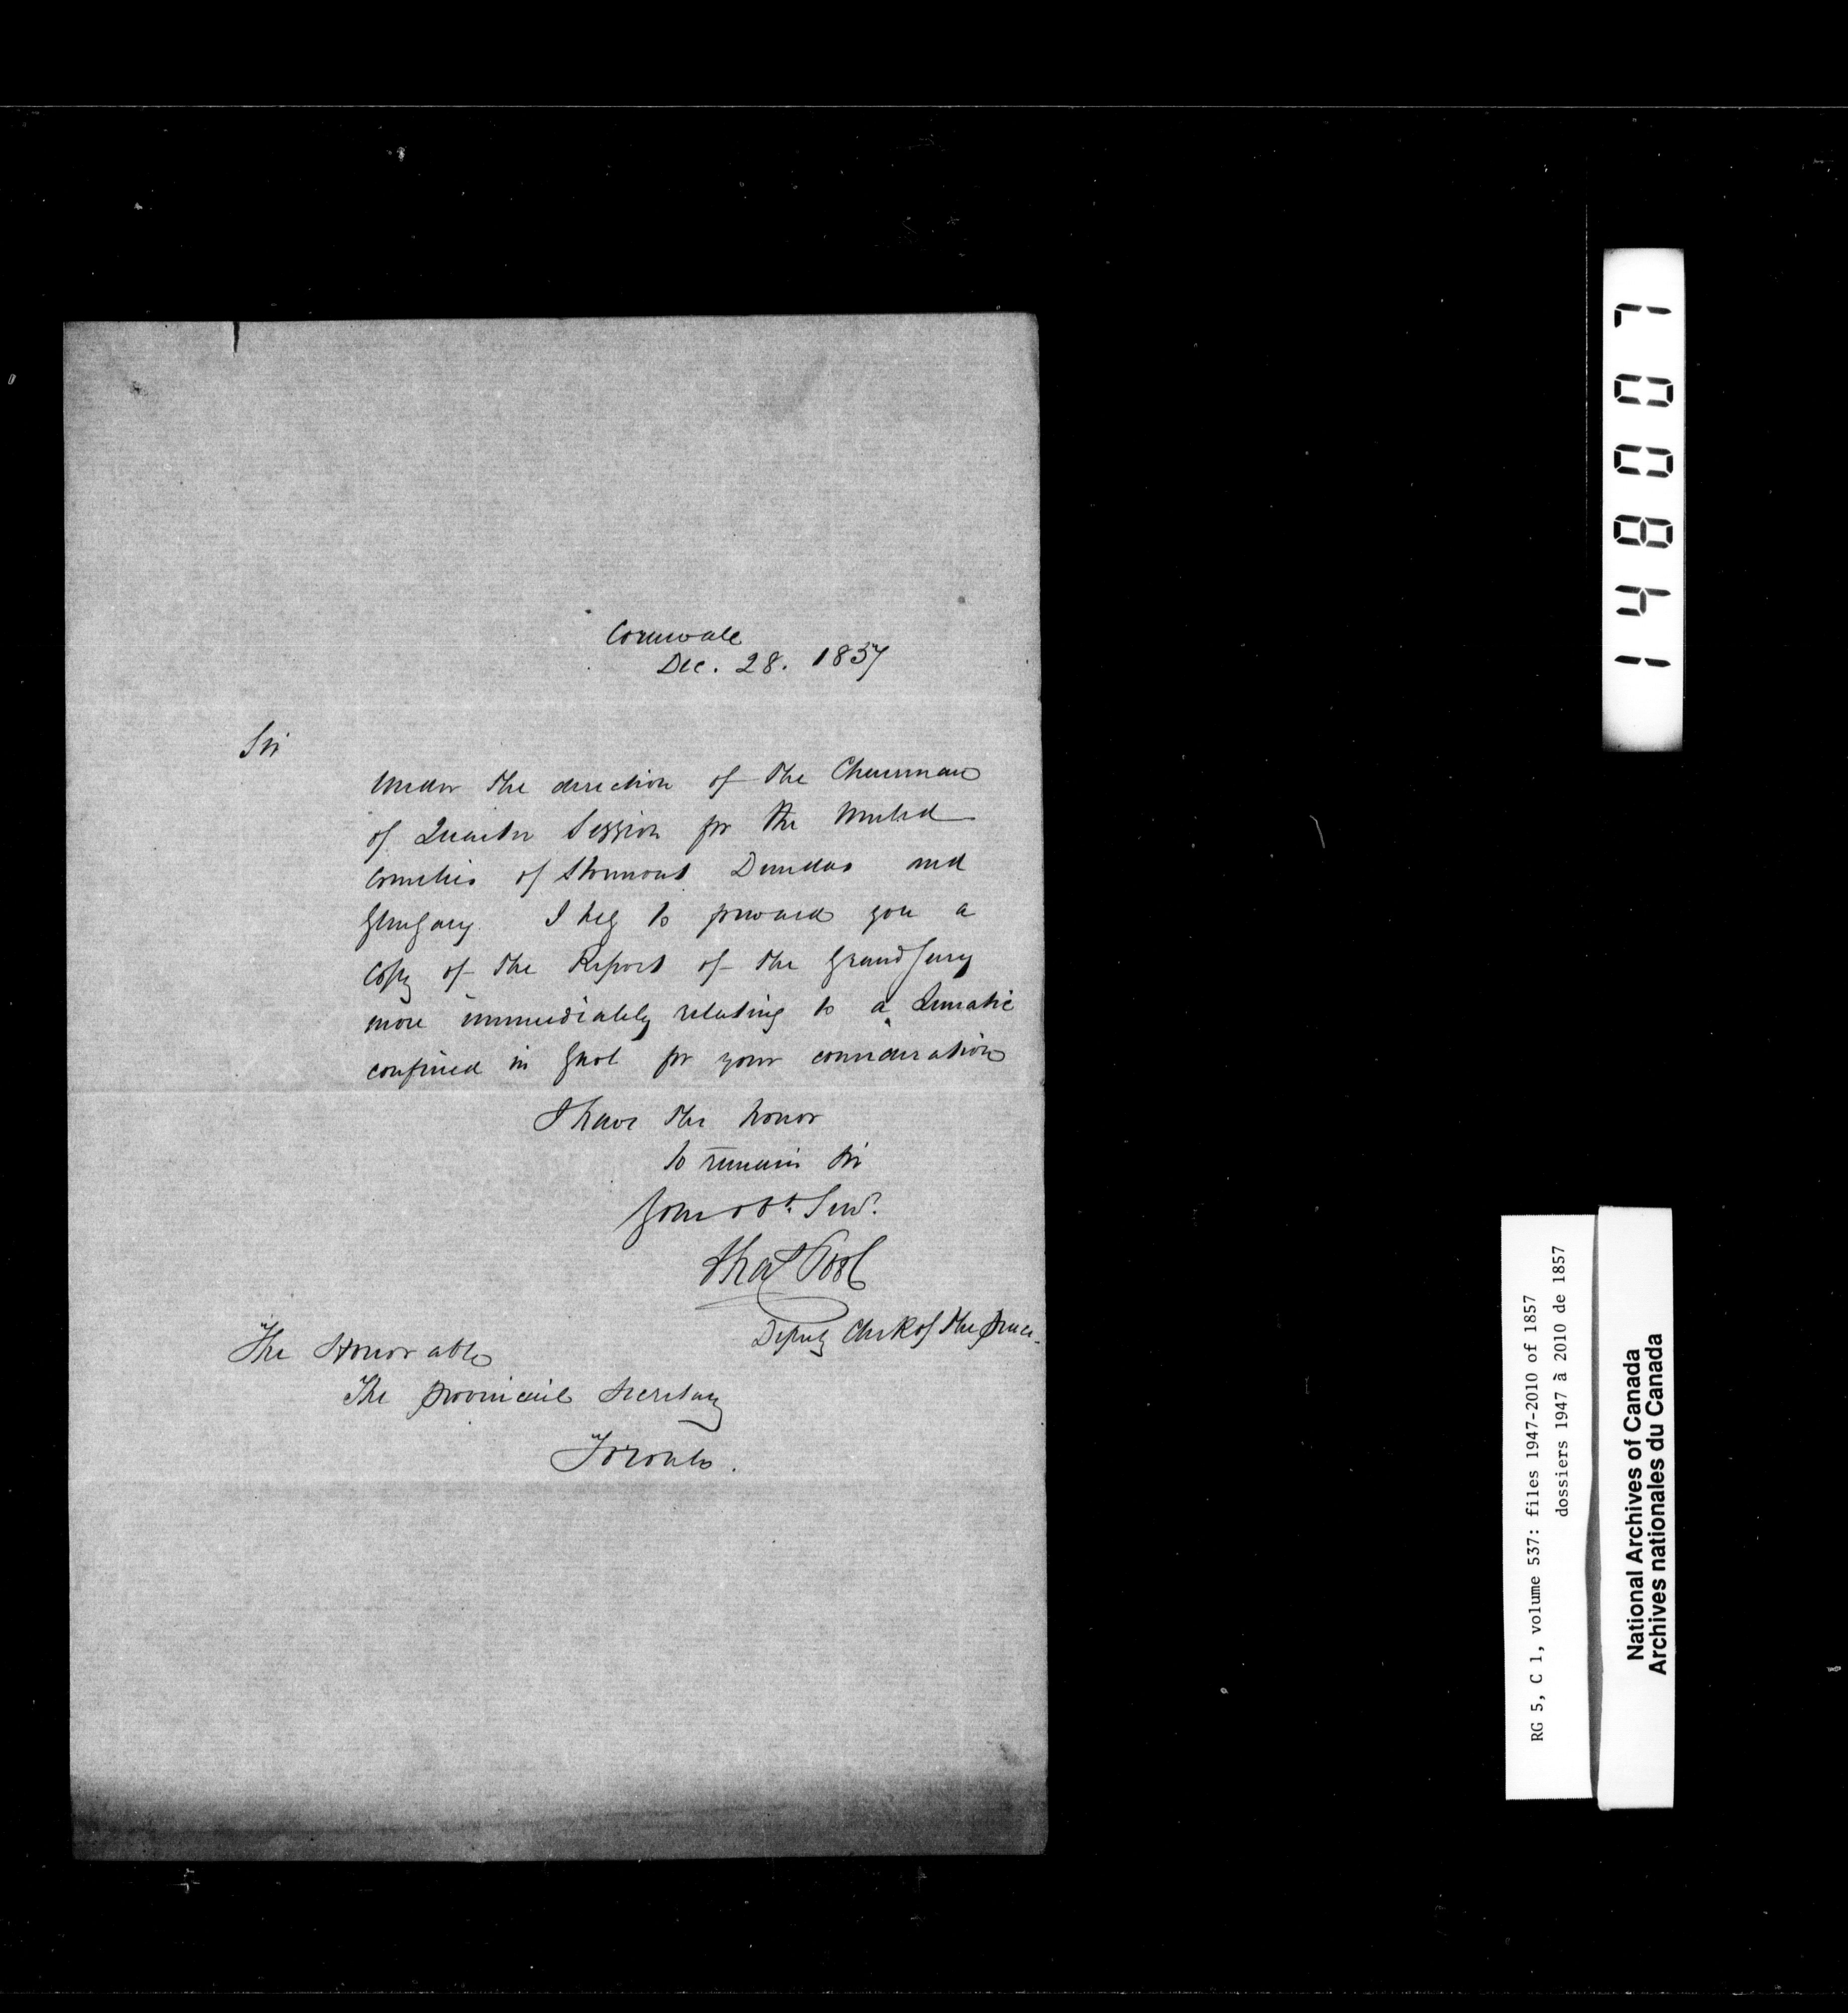 Cornwall
Dec. 28. 1857
Sir
Under the direction of the Chairman
of Quarter Session for the United
Counties of Stormont Dundas and
Glengary. I beg to forward you a
Copy of the Report of the Grand Jury
more immediately relating to a Lunatic
confined in Gaol for your consideration
I have the honor
to remain Sir
Your obt. Servt.
Deputy Clerk of the Peace
The Honorable
The Provincial Secretary
Toronto.
148007
RG 5, C 1, volume 537: files 1947-2010 of 1857
dossiers 1947 à 2010 de 1857
National Archives of Canada
Archives nationales du Canada